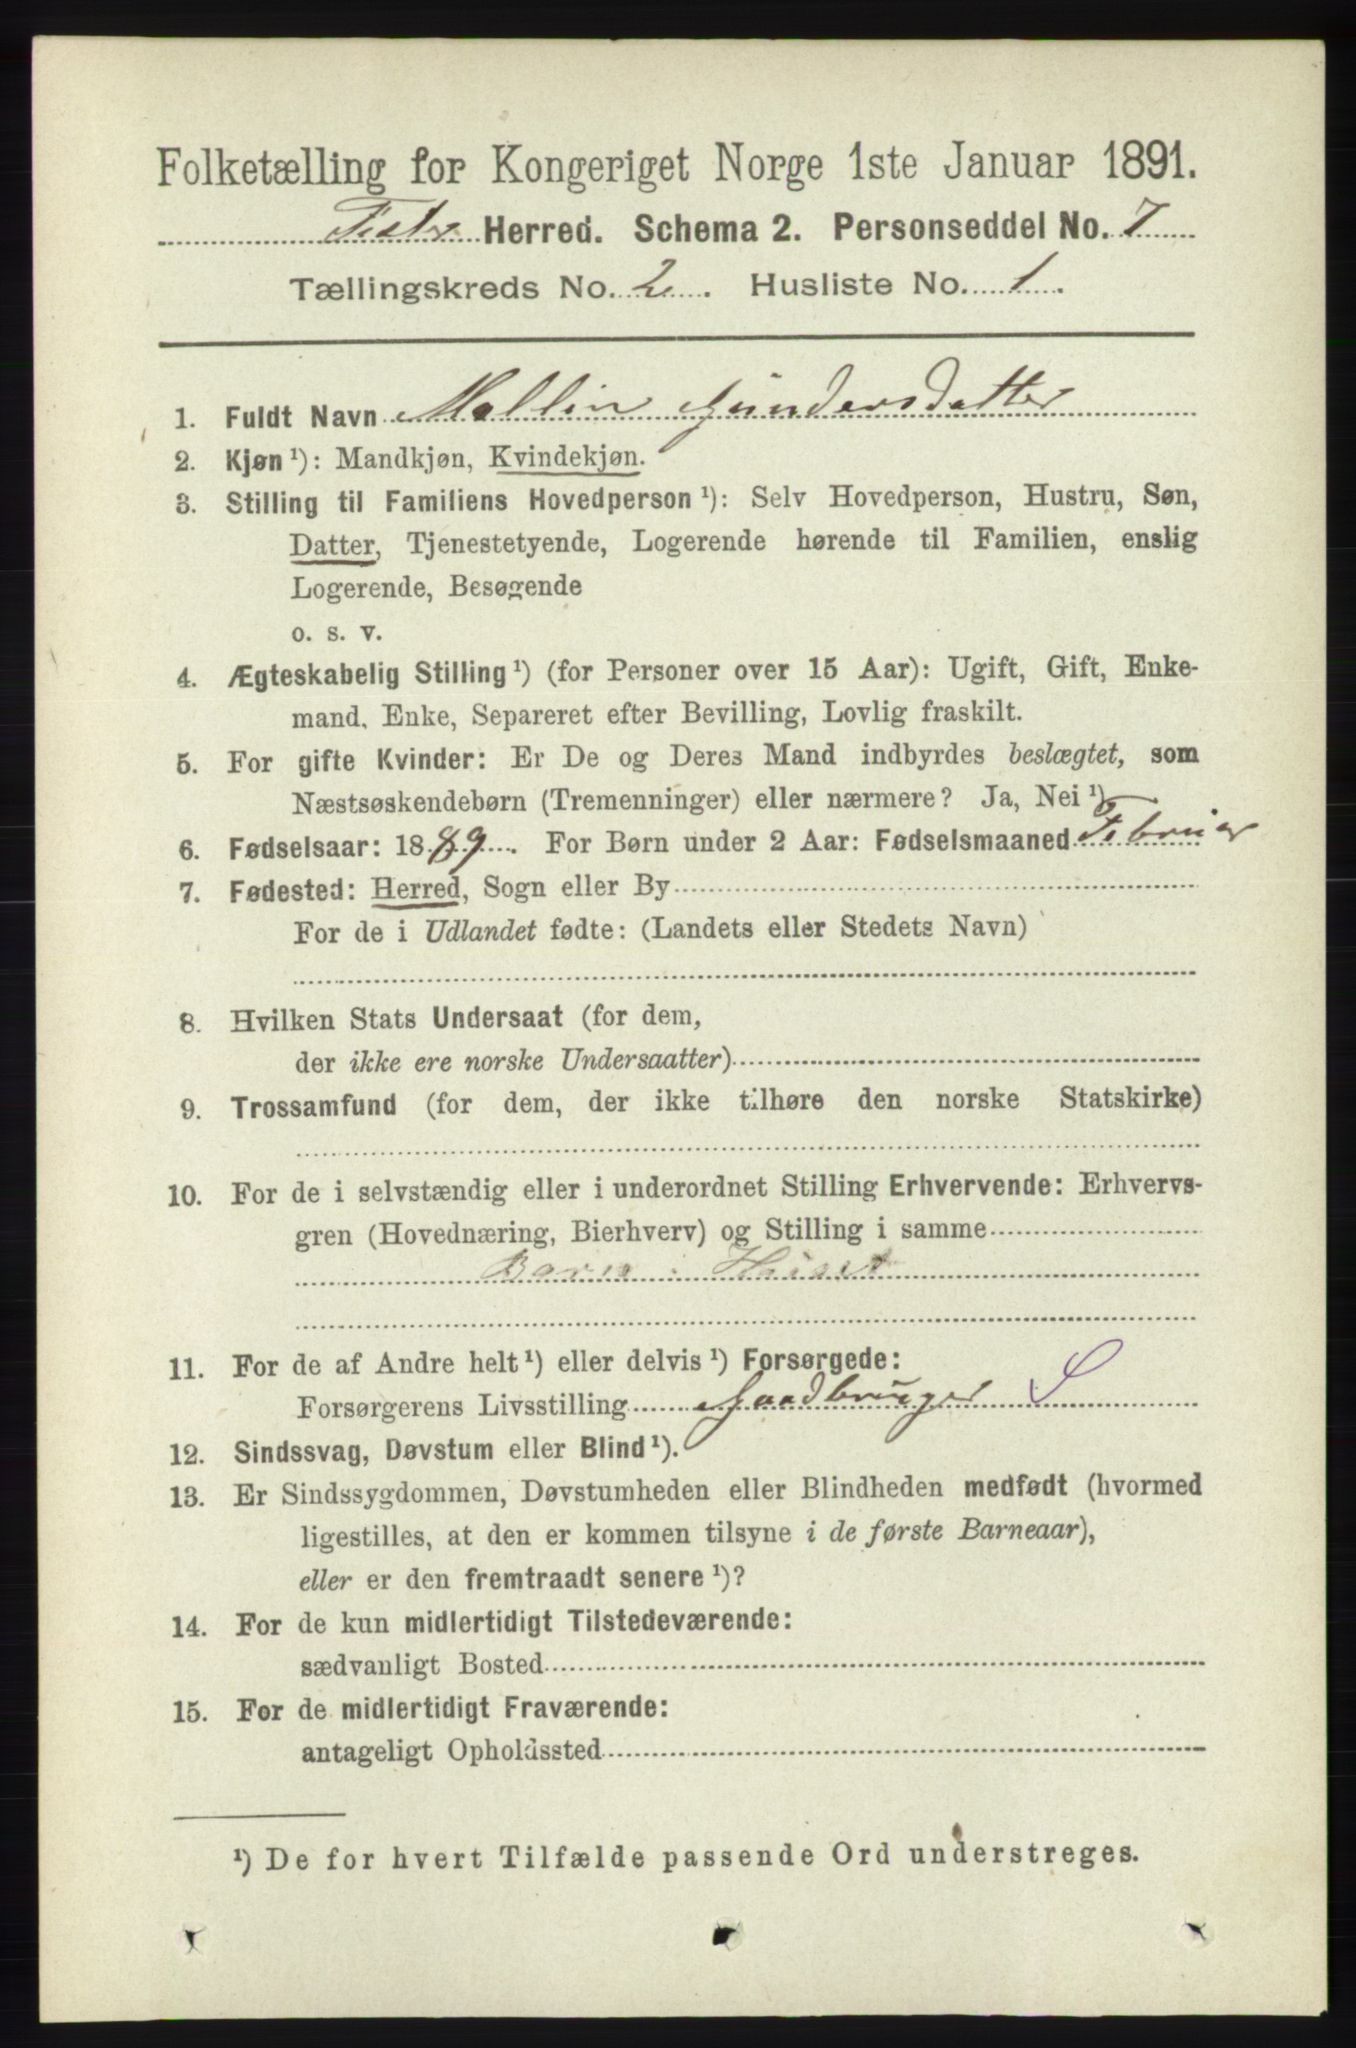 Folketælling for Kongeriget Norge 1ste Januar 1891.
Herred. Schema 2. Personseddel No. 7
Tællingskreds No. 2. Husliste No. 1.
1. Fuldt Navn Mallin Gundersdatter
2. Kjøn ¹): Mandkjøn, Kvindekjøn.
3. Stilling til Familiens Hovedperson ¹): Selv Hovedperson, Hustru, Søn,
Datter, Tjenestetyende, Logerende hørende til Familien, enslig
Logerende, Besøgende
o. s. v.
4. Ægteskabelig Stilling ¹) (for Personer over 15 Aar): Ugift, Gift, Enke-
mand, Enke, Separeret efter Bevilling, Lovlig fraskilt.
5. For gifte Kvinder: Er De og Deres Mand indbyrdes beslægtet, som
Næstsøskendebørn (Tremenninger) eller nærmere? Ja, Nei ¹).
6. Fødselsaar: 1889. For Børn under 2 Aar: Fødselsmaaned Februar
7. Fødested: Herred, Sogn eller By
For de i Udlandet fødte: (Landets eller Stedets Navn)
8. Hvilken Stats Undersaat (for dem,
der ikke ere norske Undersaatter)
9. Trossamfund (for dem, der ikke tilhøre den norske Statskirke)
10. For de i selvstændig eller i underordnet Stilling Erhvervende: Erhvervs-
gren (Hovednæring, Bierhverv) og Stilling i samme
Barn i Huset
11. For de af Andre helt ¹) eller delvis ¹) Forsørgede:
Forsørgerens Livsstilling Gaardbruger S
12. Sindssvag, Døvstum eller Blind ¹).
13. Er Sindssygdommen, Døvstumheden eller Blindheden medfødt (hvormed
ligestilles, at den er kommen tilsyne i de første Barneaar),
eller er den fremtraadt senere ¹)?
14. For de kun midlertidigt Tilstedeværende:
sædvanligt Bosted
15. For de midlertidigt Fraværende:
antageligt Opholdssted
¹) De for hvert Tilfælde passende Ord understreges.